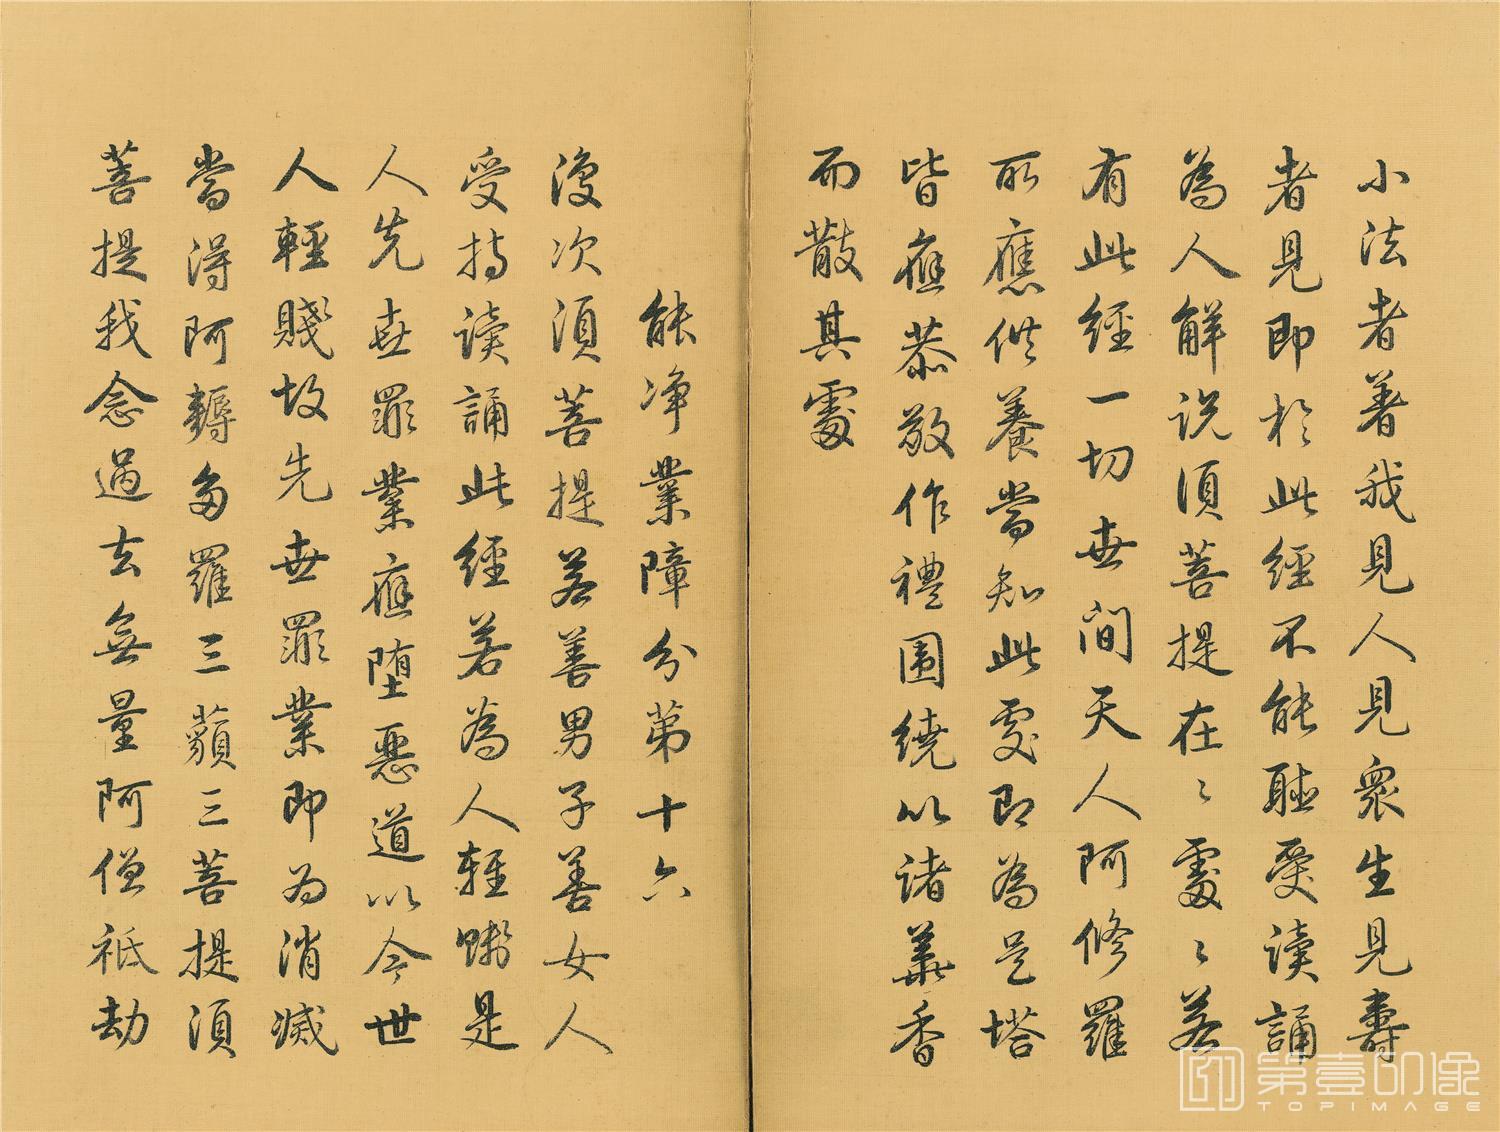 小法者著我見人見衆生見壽
者見即於此經不能聽受讀誦
為人解説須菩提在〻處〻若
有此經一切世間天人阿修羅
所應供養當知此處即為是塔
皆應恭敬作禮圍繞以諸華香
而散其處
能净業障分第十六
復次須菩提若善男子善女人
受持讀誦此經若為人輕賤是
人先世罪業應堕惡道以今世
人輕賤故先世罪業即為消滅
當得阿耨多羅三藐三菩提須
菩提我念過去無量阿僧祇劫
第壹印像
TOPIMAGE